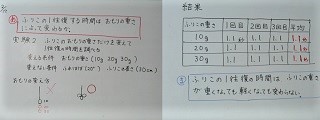 ふりこの1往復する時間は おもりの重さ
によって変わるか。
実験2 ふりこのおもりの重さだけを変えて
1往復の時間を調べる
変える条件 おもりの重さ (10g 20g 30g)
変えない条件 ふれはば(20°) ふりこの長さ(30cm)
おもりの変え方
結果
ふりこの重さ 1回目 2回目 3回目 平均
10g 1.1秒 1.1秒 1.1秒 1.1秒
20g 1.1 1.1 1.1 1.1秒
30g 1.1 1.1 1.1 1.1秒
ふりこの1往復の時間は ふりこの重さ
が重くなっても軽くなっても変わらない。